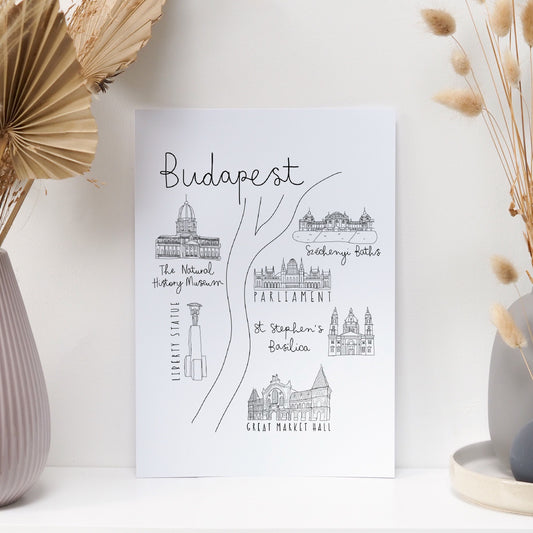 Budapest
Széchenyi Baths
The Natural
History Museum
PARLIAMENT
LIBERTY STATUE
St Stephen's
Basilica
GREAT MARKET HALL